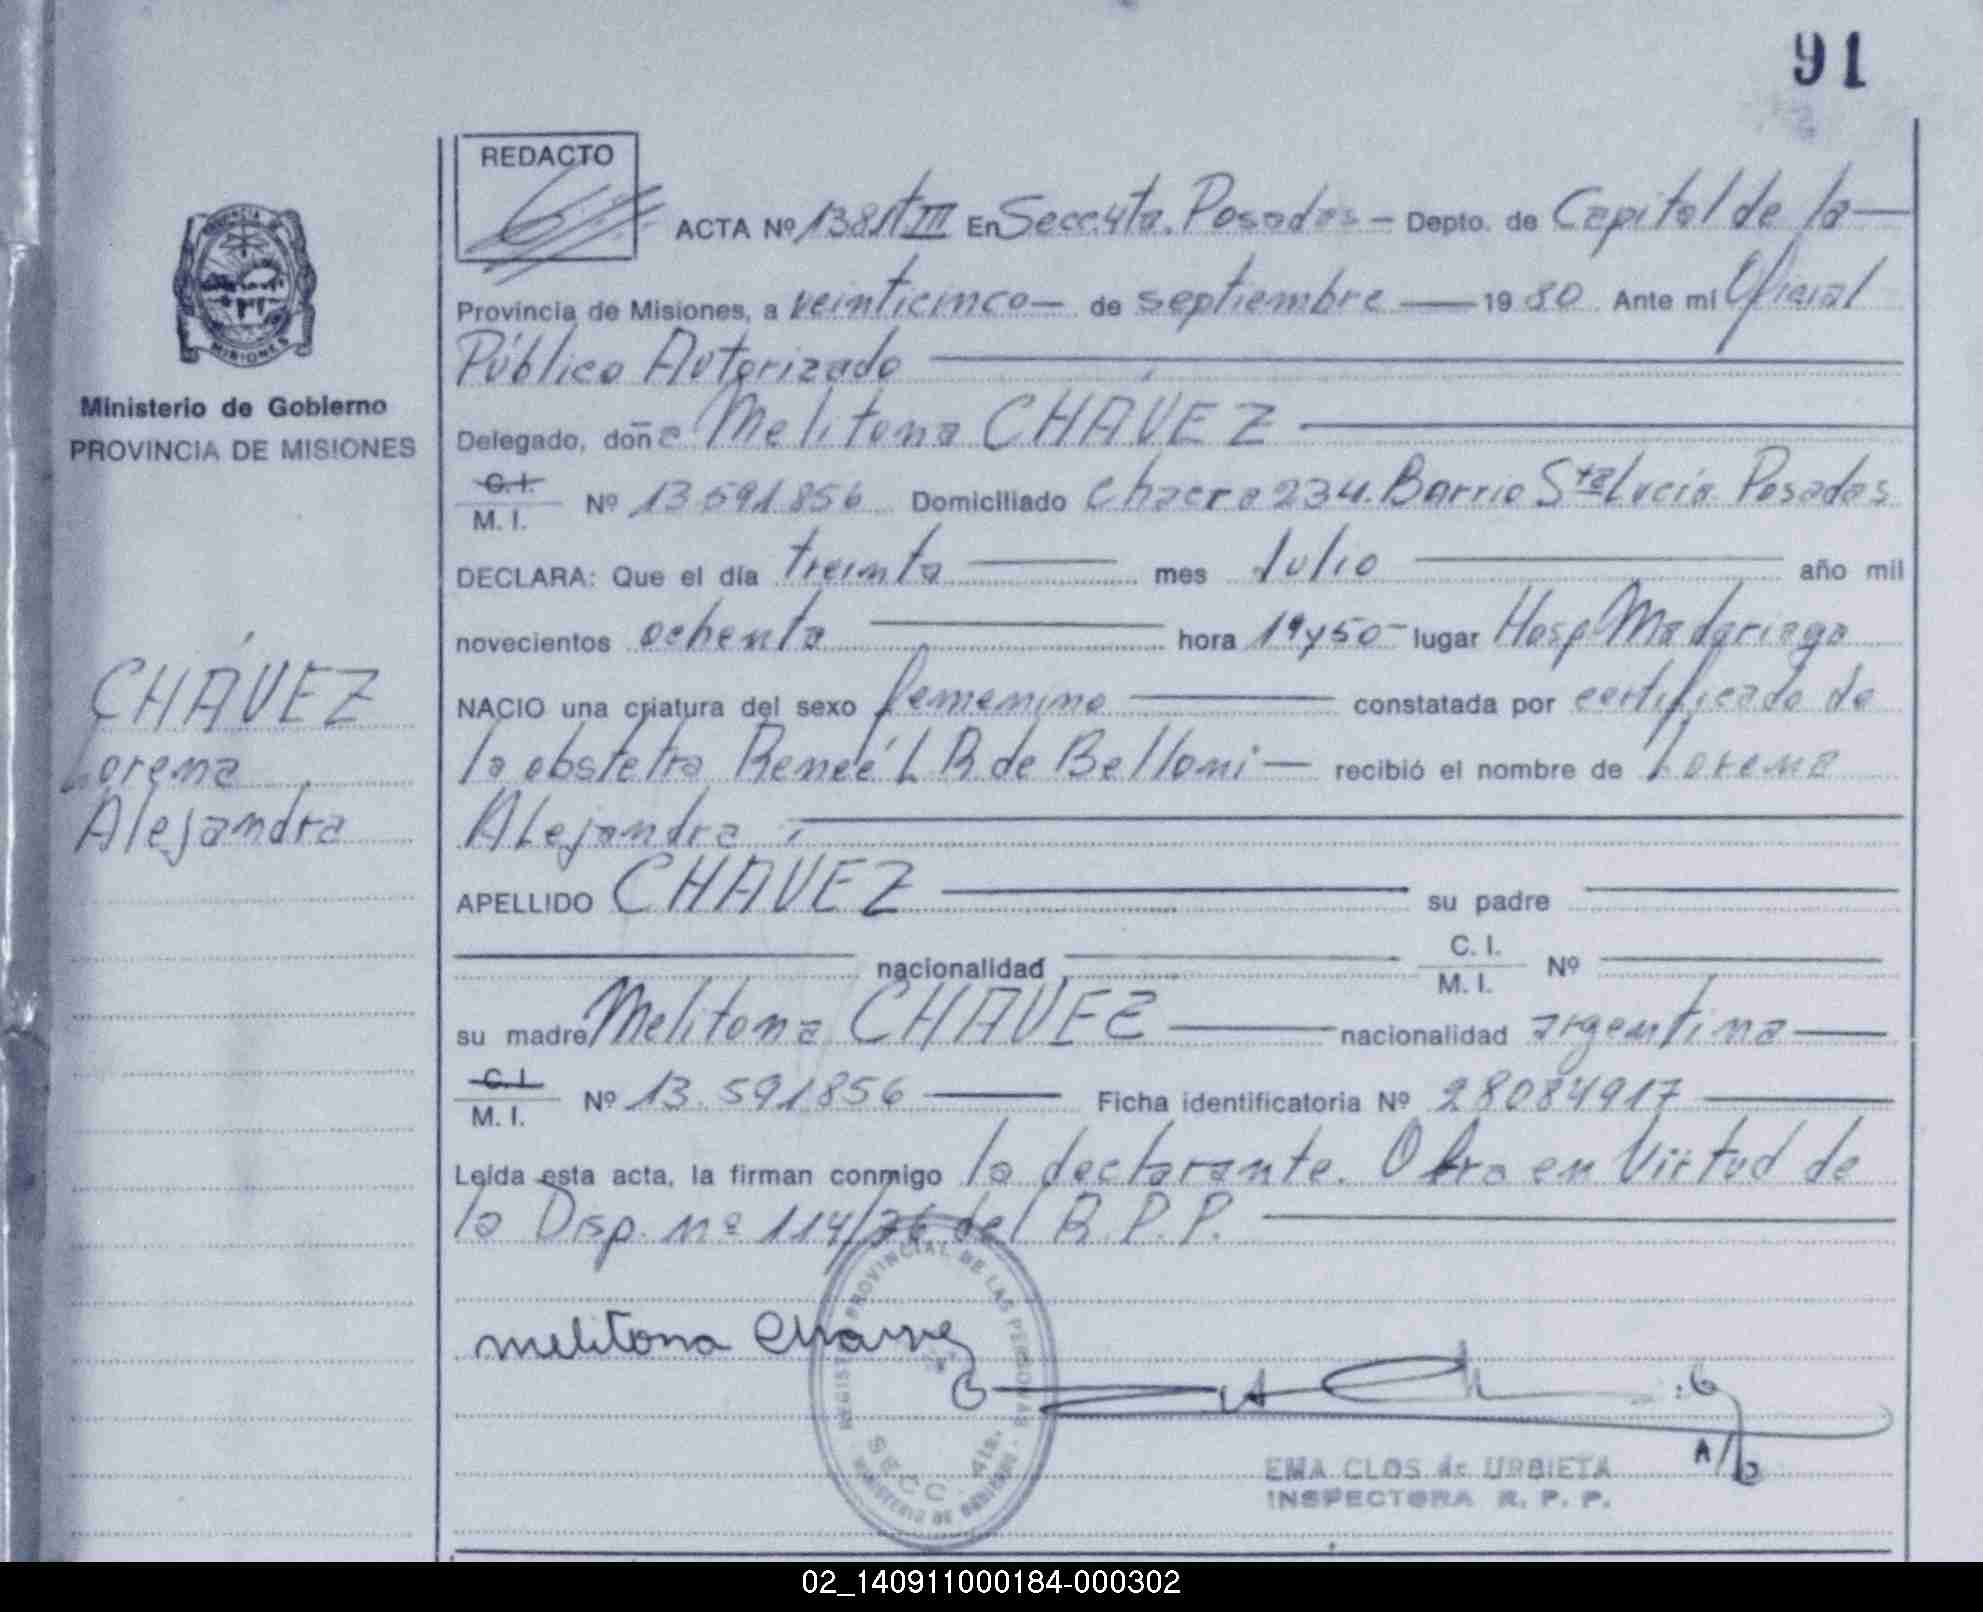 91
REDACTO
ACTA Nº 1381 T III En Secc. 4ta. Posadas - Depto. de Capital de la
Provincia de Misiones, a veinticinco de septiembre 1980 Ante mi Oficial
Público Autorizado
Delegado, doña Melitona CHÁVEZ
C. I. / M. I. Nº 13.591.856 Domiciliado Chacra 234. Barrio Sta Lucía. Posadas
DECLARA: Que el día treinta mes Julio año mil
novecientos ochenta hora 19 y 50 - lugar Hosp. Madariaga
NACIO una criatura del sexo femenino constatada por certificado de
la obstetra Reneé L R de Belloni recibió el nombre de Lorena
Alejandra
APELLIDO CHAVEZ su padre
nacionalidad C. I. / M. I. Nº
su madre Melitona CHAVEZ nacionalidad argentina
C. I. / M. I. Nº 13.591856 Ficha identificatoria Nº 28084917
Leída esta acta, la firman conmigo la declarante. Obra en Virtud de
la Disp. nº 114/76 del R.P.P.
melitona Chavez
REGISTRO PROVINCIAL DE LAS PERSONAS
SECC. 4ta.
EMA CLOS de URBIETA
INSPECTORA R. P. P.
A/c
MISIONES
Ministerio de Gobierno
PROVINCIA DE MISIONES
CHÁVEZ
Lorena
Alejandra
02_140911000184-000302